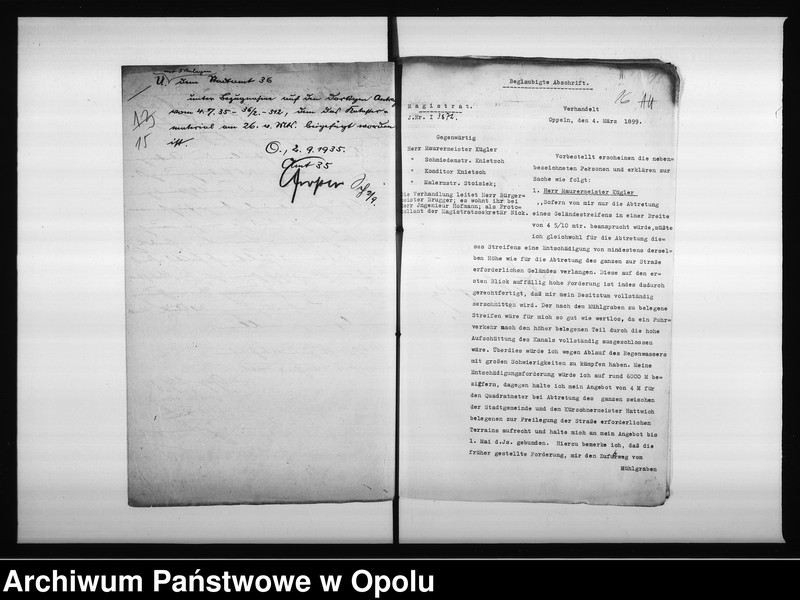 mit 5 Anlagen
U. dem Stadtamt 36
unter Bezugnahme auf den dortigen Antrag
vom 4.7.35 - 36/2 - 312, dem das
material am 26. v. Mts. beigefügt worden
ist.
O., 2.9.1935.
Amt 35
Beglaubigte Abschrift.
Magistrat.
J.Nr. I 3672.
Verhandelt
Oppeln, den 4. März 1899.
Gegenwärtig
Herr Maurermeister Kügler
" Schmiedemstr. Knietsch
" Konditor Knietsch
" Malermstr. Stoisiek;
Die Verhandlung leitet Herr Bürger-
meister Brugger; es wohnt ihr bei
Herr Ingenieur Hofmann; als Proto-
kollant der Magistratssekretär Nick.
Vorbestellt erscheinen die neben-
bezeichneten Personen und erklären zur
Sache wie folgt:
1. Herr Maurermeister Kügler
„Sofern von mir nur die Abtretung
eines Geländestreifens in einer Breite
von 4 5/10 mtr. beansprucht würde, müßte
ich gleichwohl für die Abtretung die-
ses Streifens eine Entschädigung von mindestens dersel-
ben Höhe wie für die Abtretung des ganzen zur Straße
erforderlichen Geländes verlangen. Diese auf den er-
sten Blick auffällig hohe Forderung ist indes dadurch
gerechtfertigt, daß mir mein Besitztum vollständig
zerschnitten wird. Der nach dem Mühlgraben zu belegene
Streifen wäre für mich so gut wie wertlos, da ein Fuhr-
verkehr nach den höher belegenen Teil durch die hohe
Aufschüttung des Kanals vollständig ausgeschlossen
wäre. Überdies würde ich wegen Ablauf des Regenwassers
mit großen Schwierigkeiten zu kämpfen haben. Meine
Entschädigungsforderung würde ich auf rund 6000 M be-
ziffern, dagegen halte ich mein Angebot von 4 M für
den Quadratmeter bei Abtretung des ganzen zwischen
der Stadtgemeinde und dem Kürschnermeister Hattwich
belegenen zur Freilegung der Straße erforderlichen
Terrains aufrecht und halte mich an mein Angebot bis
1. Mai d.Js. gebunden. Hierzu bemerke ich, daß die
früher gestellte Forderung, mir den Zufuhrweg vom
Mühlgraben
Archiwum Państwowe w Opolu